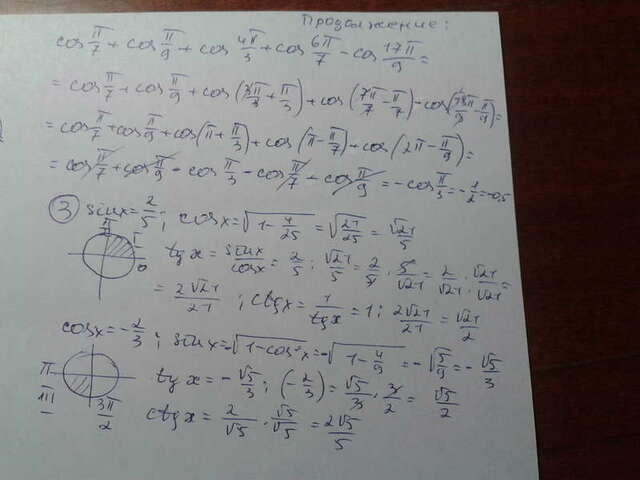 Продолжение:
cos π/7 + cos π/9 + cos 4π/3 + cos 6π/7 - cos 17π/9 =
= cos π/7 + cos π/9 + cos (3π/3 + π/3) + cos (7π/7 - π/7) - cos (18π/9 - π/9) =
= cos π/7 + cos π/9 + cos (π + π/3) + cos (π - π/7) - cos (2π - π/9) =
= cos π/7 + cos π/9 - cos π/3 - cos π/7 - cos π/9 = - cos π/3 = - 1/2 = -0,5
③ sin x = 2/5 ; cos x = √(1 - 4/25) = √(21/25) = √21/5
π/2 I 0
tg x = sin x/cos x = 2/5 : √21/5 = 2/5 · 5/√21 = 2/√21 · √21/√21 =
= 2√21/21 ; ctg x = 1/tg x = 1 : 2√21/21 = √21/2
cos x = - 2/3 ; sin x = -√(1 - cos² x) = -√(1 - 4/9) = -√(5/9) = - √5/3
π III 3π/2
tg x = - √5/3 : (- 2/3) = √5/3 · 3/2 = √5/2
ctg x = 2/√5 · √5/√5 = 2√5/5